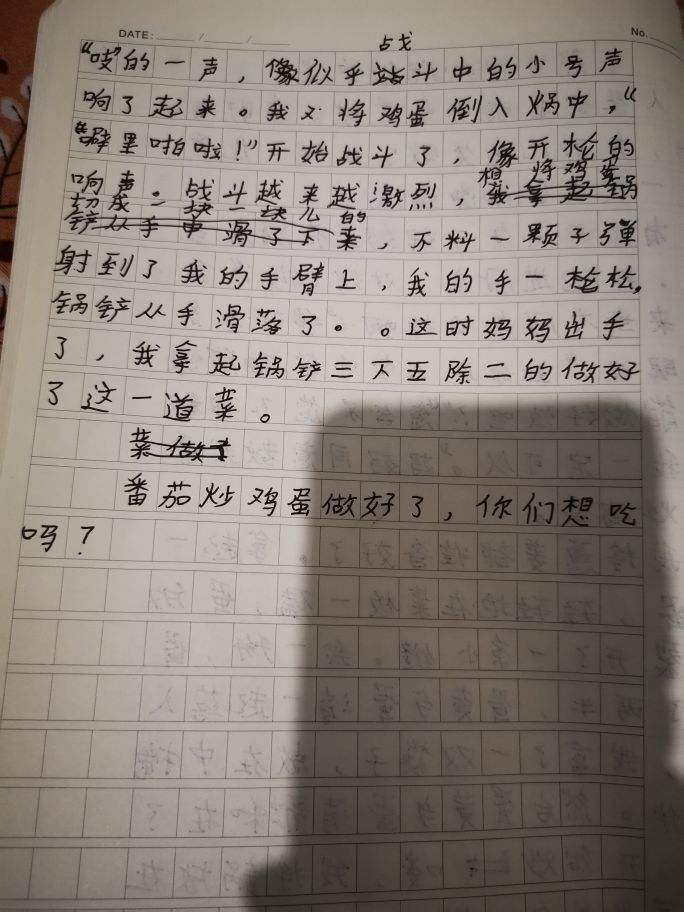 DATE: / / No.
战
“吱”的一声，像似乎站斗中的小号声
响了起来。我又将鸡蛋倒入锅中，“
“噼里啪啦！”开始战斗了，像开枪的
想将鸡蛋
响声。战斗越来越激烈，我拿起锅
切成一块一块儿的
铲从手中滑了下来，不料一颗子弹
射到了我的手臂上，我的手一松，
锅铲从手滑落了。。这时妈妈出手
了，我拿起锅铲三下五除二的做好
了这一道菜。
菜做
番茄炒鸡蛋做好了，你们想吃
吗？